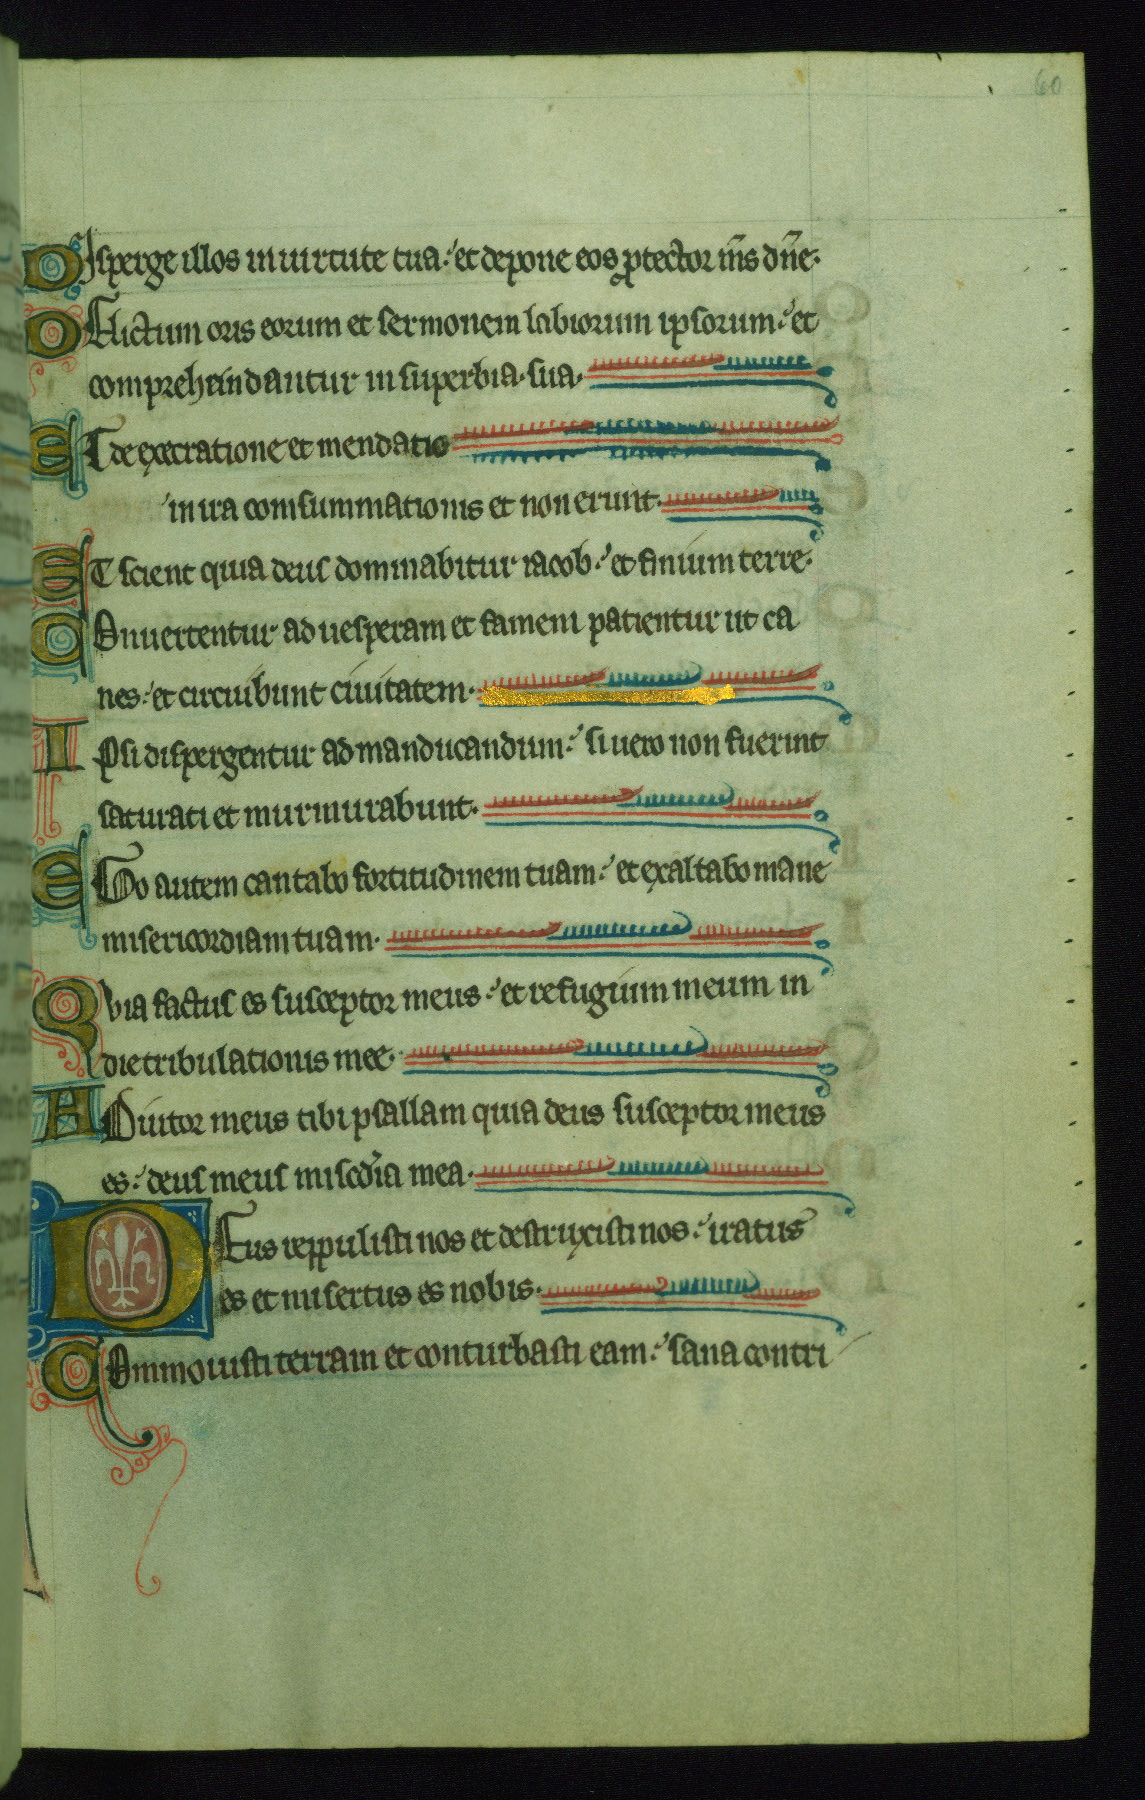 60
DIsperge illos in uirtute tua: et depone eos ꝓtector ñis dñe.
DElictum oris eorum et sermonem labiorum ipsorum: et
comprehendantur in superbia sua.
ET de execratione et mendatio
in ira comsummationis et non erunt.
ET scient quia deus dominabitur iacob: et finium terre.
COnuertentur ad uesperam et famem patientur ut ca
nes: et circuibunt ciuitatem.
IPsi dispergentur ad manducandum: si uero non fuerint
saturati et murmurabunt.
EGo autem cantabo fortitudinem tuam: et exaltabo mane
misericordiam tuam.
QVia factus es susceptor meus: et refugium meum in
die tribulationis mee.
ADiutor meus tibi psallam quia deus susceptor meus
es: deus meus miscd̃ia mea.
DEus reppulisti nos et destruxisti nos: iratus
es et misertus es nobis.
COmmouisti terram et conturbasti eam: sana contri